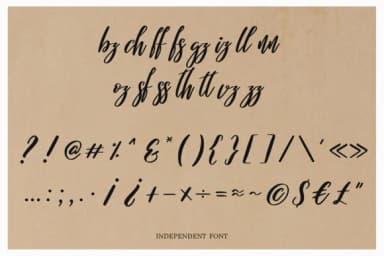 bz ch ff fs gz iz ll nn
oz sf ss th tt vz zz
? ! @ # % ^ & * ( ) { } [ ] / \ ' « »
… : ; , . · ¡ ¿ + − × ÷ = ≈ ~ © $ € £ "
INDEPENDENT FONT